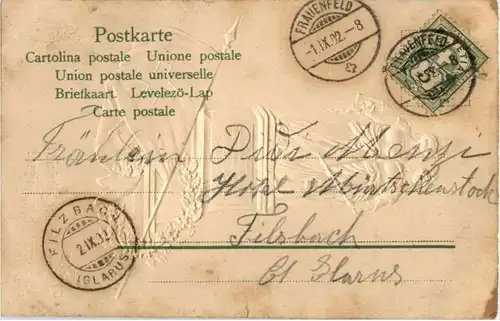 Postkarte
Cartolina postale Unione postale
Union postale universelle
Briefkaart. Levelezö-Lap
Carte postale
FRAUENFELD
-1.IX.02.-8
FRAUENFELD
Fräulein
Hotel Mürtschenstock
Filzbach
Ct Glarus
FILZBACH
2.IX.02
(GLARUS)